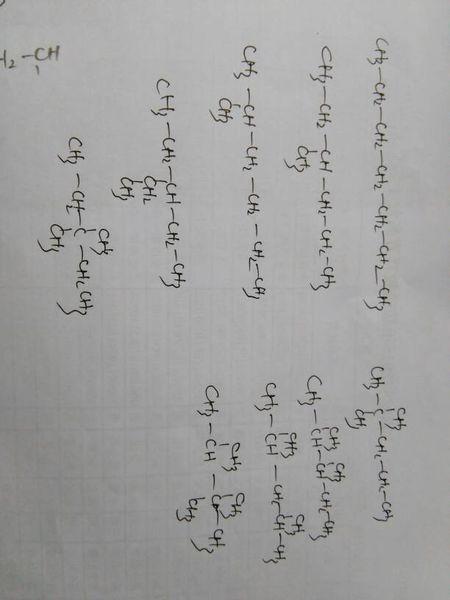 CH3—CH2—CH2—CH2—CH2—CH2—CH3
CH3—CH2—CH—CH2—CH2—CH3
CH3
CH3—CH—CH2—CH2—CH2—CH3
CH3
CH3—CH2—CH—CH2—CH3
CH2
CH3
CH3
CH3—CH2—C—CH2CH3
CH3
CH3
CH3—C—CH2—CH2—CH3
CH3
CH3 CH3
CH3—CH—CH—CH2—CH3
CH3 CH3
CH3—CH—CH2—CH—CH3
CH3 CH3
CH3—CH—C—CH3
CH3
H2—CH